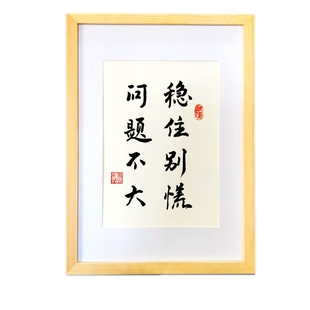 稳住别慌
问题不大